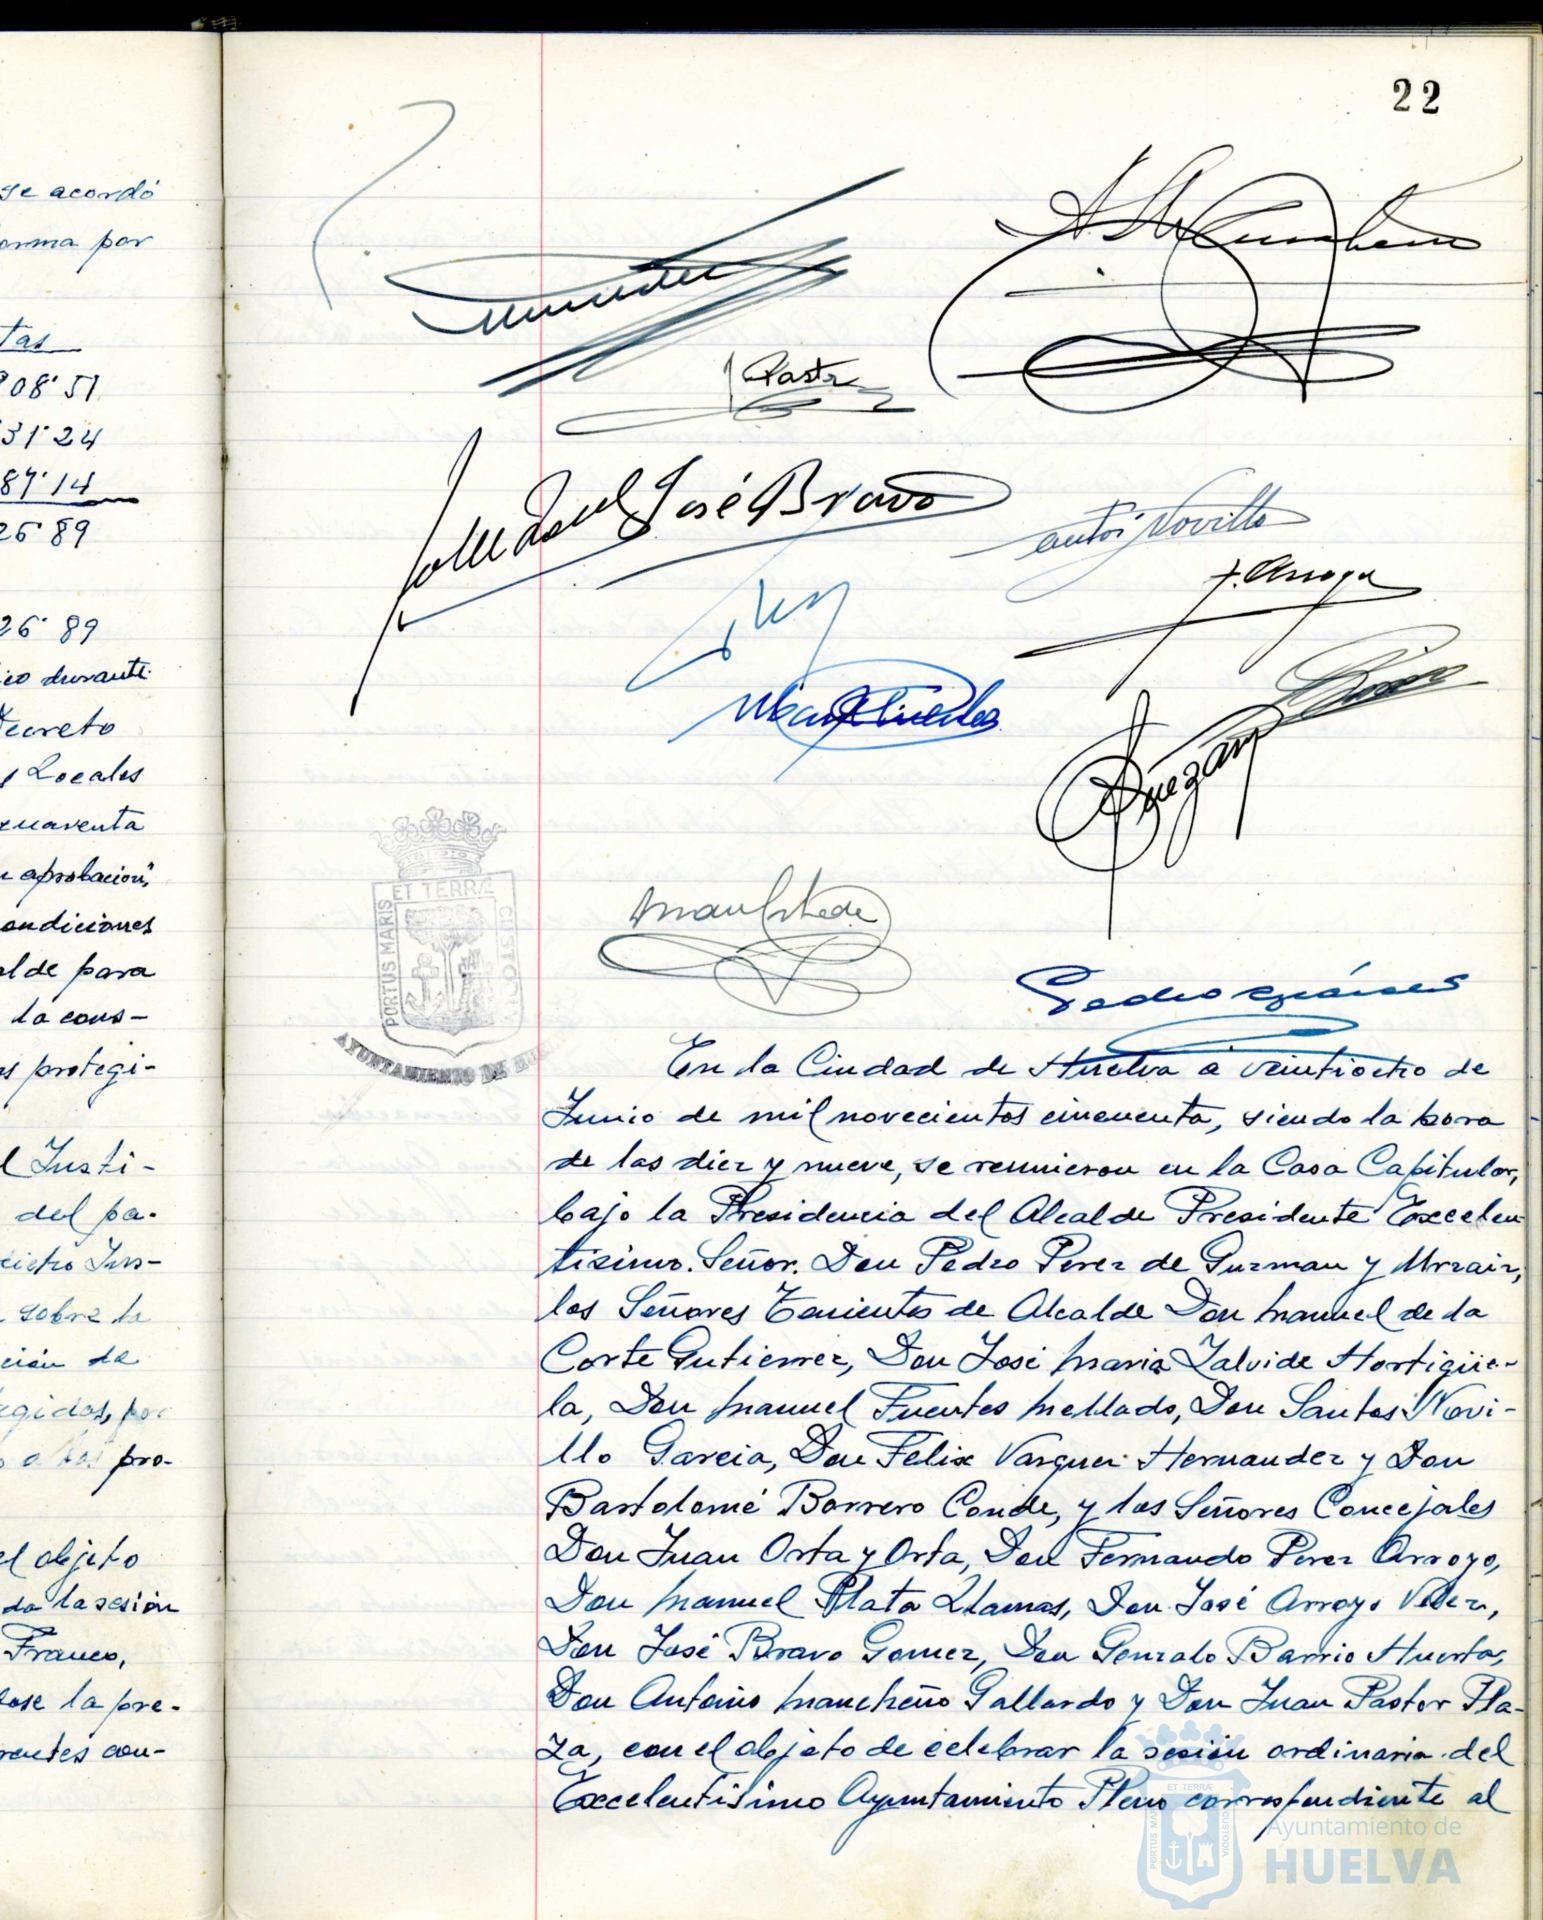 se acordó
orma por
tas
908'51
31'24
87'14
26'89
26'89
ico durante
Decreto
s Locales
cuarenta
u aprobacion",
ondiciones
alde para
la cons-
as protegi-
l Insti-
del pa-
sobre la
ción de
egidas, por
pro-
el objeto
da la sesión
Franco,
dose la pre-
rentes con-
22
Pastor
José Bravo
Santos Novillo
F. Arroyo
Manuel Fuentes
ET TERRÆ
PORTUS MARIS
CUSTO
AYUNTAMIENTO DE HU
En la Ciudad de Huelva a veintiocho de
Junio de mil novecientos cincuenta, siendo la hora
de las diez y nueve, se reunieron en la Casa Capitular,
bajo la Presidencia del Alcalde Presidente Excelen
tisimo. Señor. Don Pedro Perez de Guzman y Urzaiz,
los Señores Tenientes de Alcalde Don Manuel de la
Corte Gutierrez, Don José Maria Zalvide Hortigüe-
la, Don Manuel Fuentes Mellado, Don Santos Novi-
llo Garcia, Don Felix Vazquez Hernandez y Don
Bartolomé Borrero Conde, y los Señores Concejales
Don Juan Orta y Orta, Don Fernando Perez Arroyo,
Don Manuel Plata Llamas, Don José Arroyo Velez,
Don José Bravo Gomez, Don Gonzalo Barrio Huerta,
Don Antonio Mancheño Gallardo y Don Juan Pastor Pla-
za, con el objeto de celebrar la sesión ordinaria del
Excelentisimo Ayuntamiento Pleno correspondiente al
ET TERRÆ
PORTUS MARIS
CUSTODIA
Ayuntamiento de
HUELVA